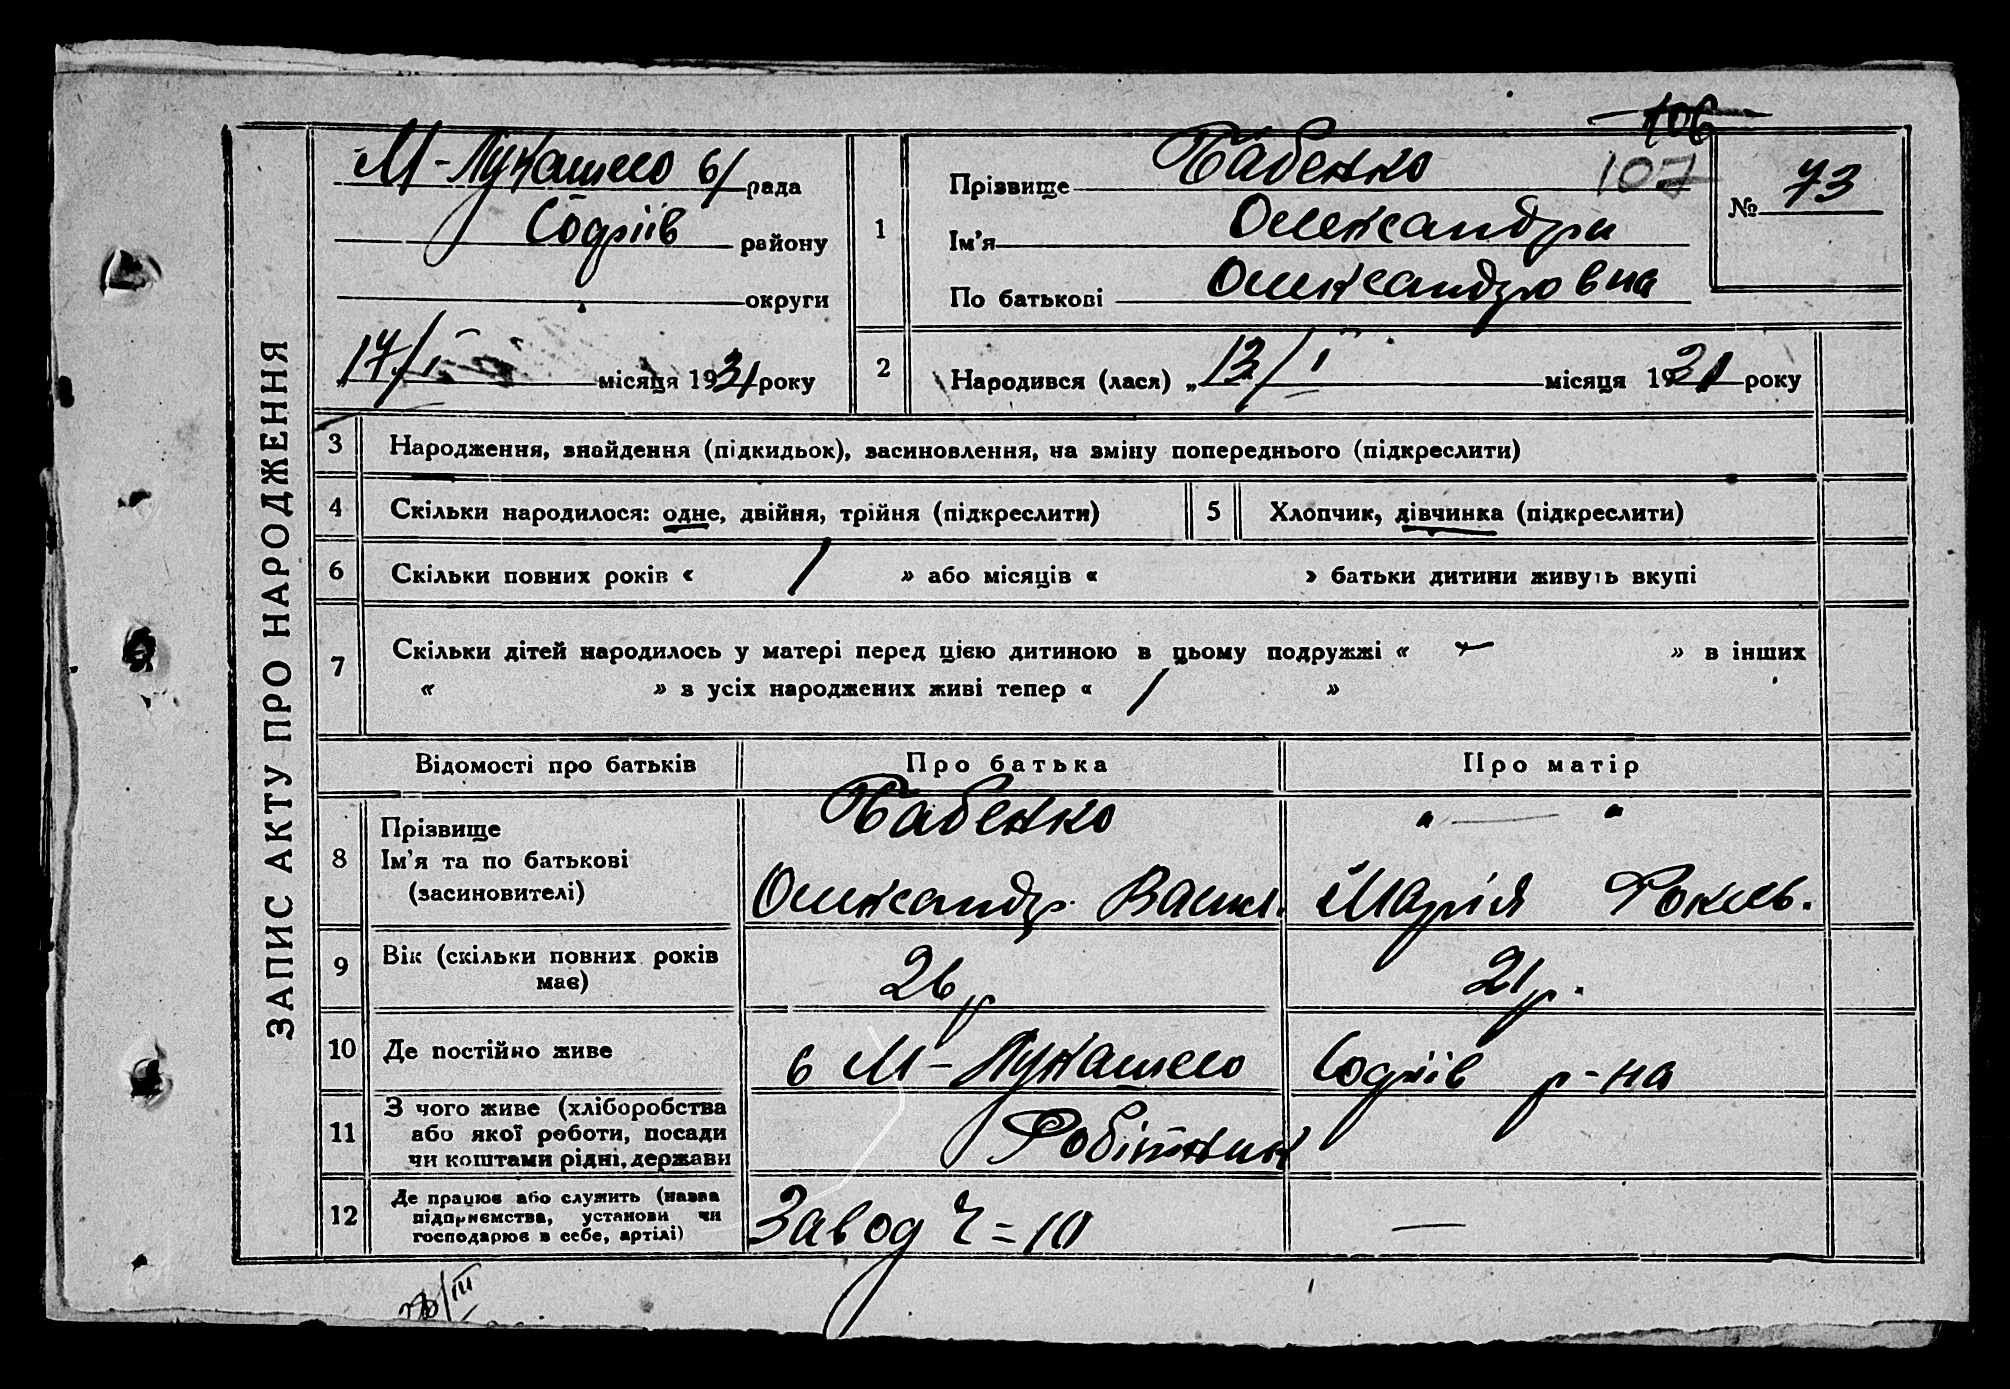 ЗАПИС АКТУ ПРО НАРОДЖЕННЯ
106
107
М-Лукашево рада
району
округи
17/I місяця 1931 року
1
Прізвище Бабенко
Ім'я Олександра
По батькові Олександровна
№ 73
2
Народився (лася) „13/I місяця 1931 року
3 Народження, знайдення (підкидьок), засиновлення, на зміну попереднього (підкреслити)
4 Скільки народилося: одне, двійня, трійня (підкреслити)
5 Хлопчик, дівчинка (підкреслити)
6 Скільки повних років « 1 » або місяців « » батьки дитини живуть вкупі
7 Скільки дітей народилось у матері перед цією дитиною в цьому подружжі « » в інших
« » з усіх народжених живі тепер « 1 »
Відомості про батьків Про батька Про матір
8 Прізвище
Ім'я та по батькові
(засиновителі)
Бабенко
Олександр Васил.
" — "
Марія
9 Вік (скільки повних років
має)
26 р
21 р.
10 Де постійно живе
М-Лукашево
р-на
11 З чого живе (хліборобства
або якої роботи, посади
чи коштами рідні, держави
Робітник
12 Де працює або служить (назва
підприємства, установи чи
господарює в себе, артілі)
Завод
—